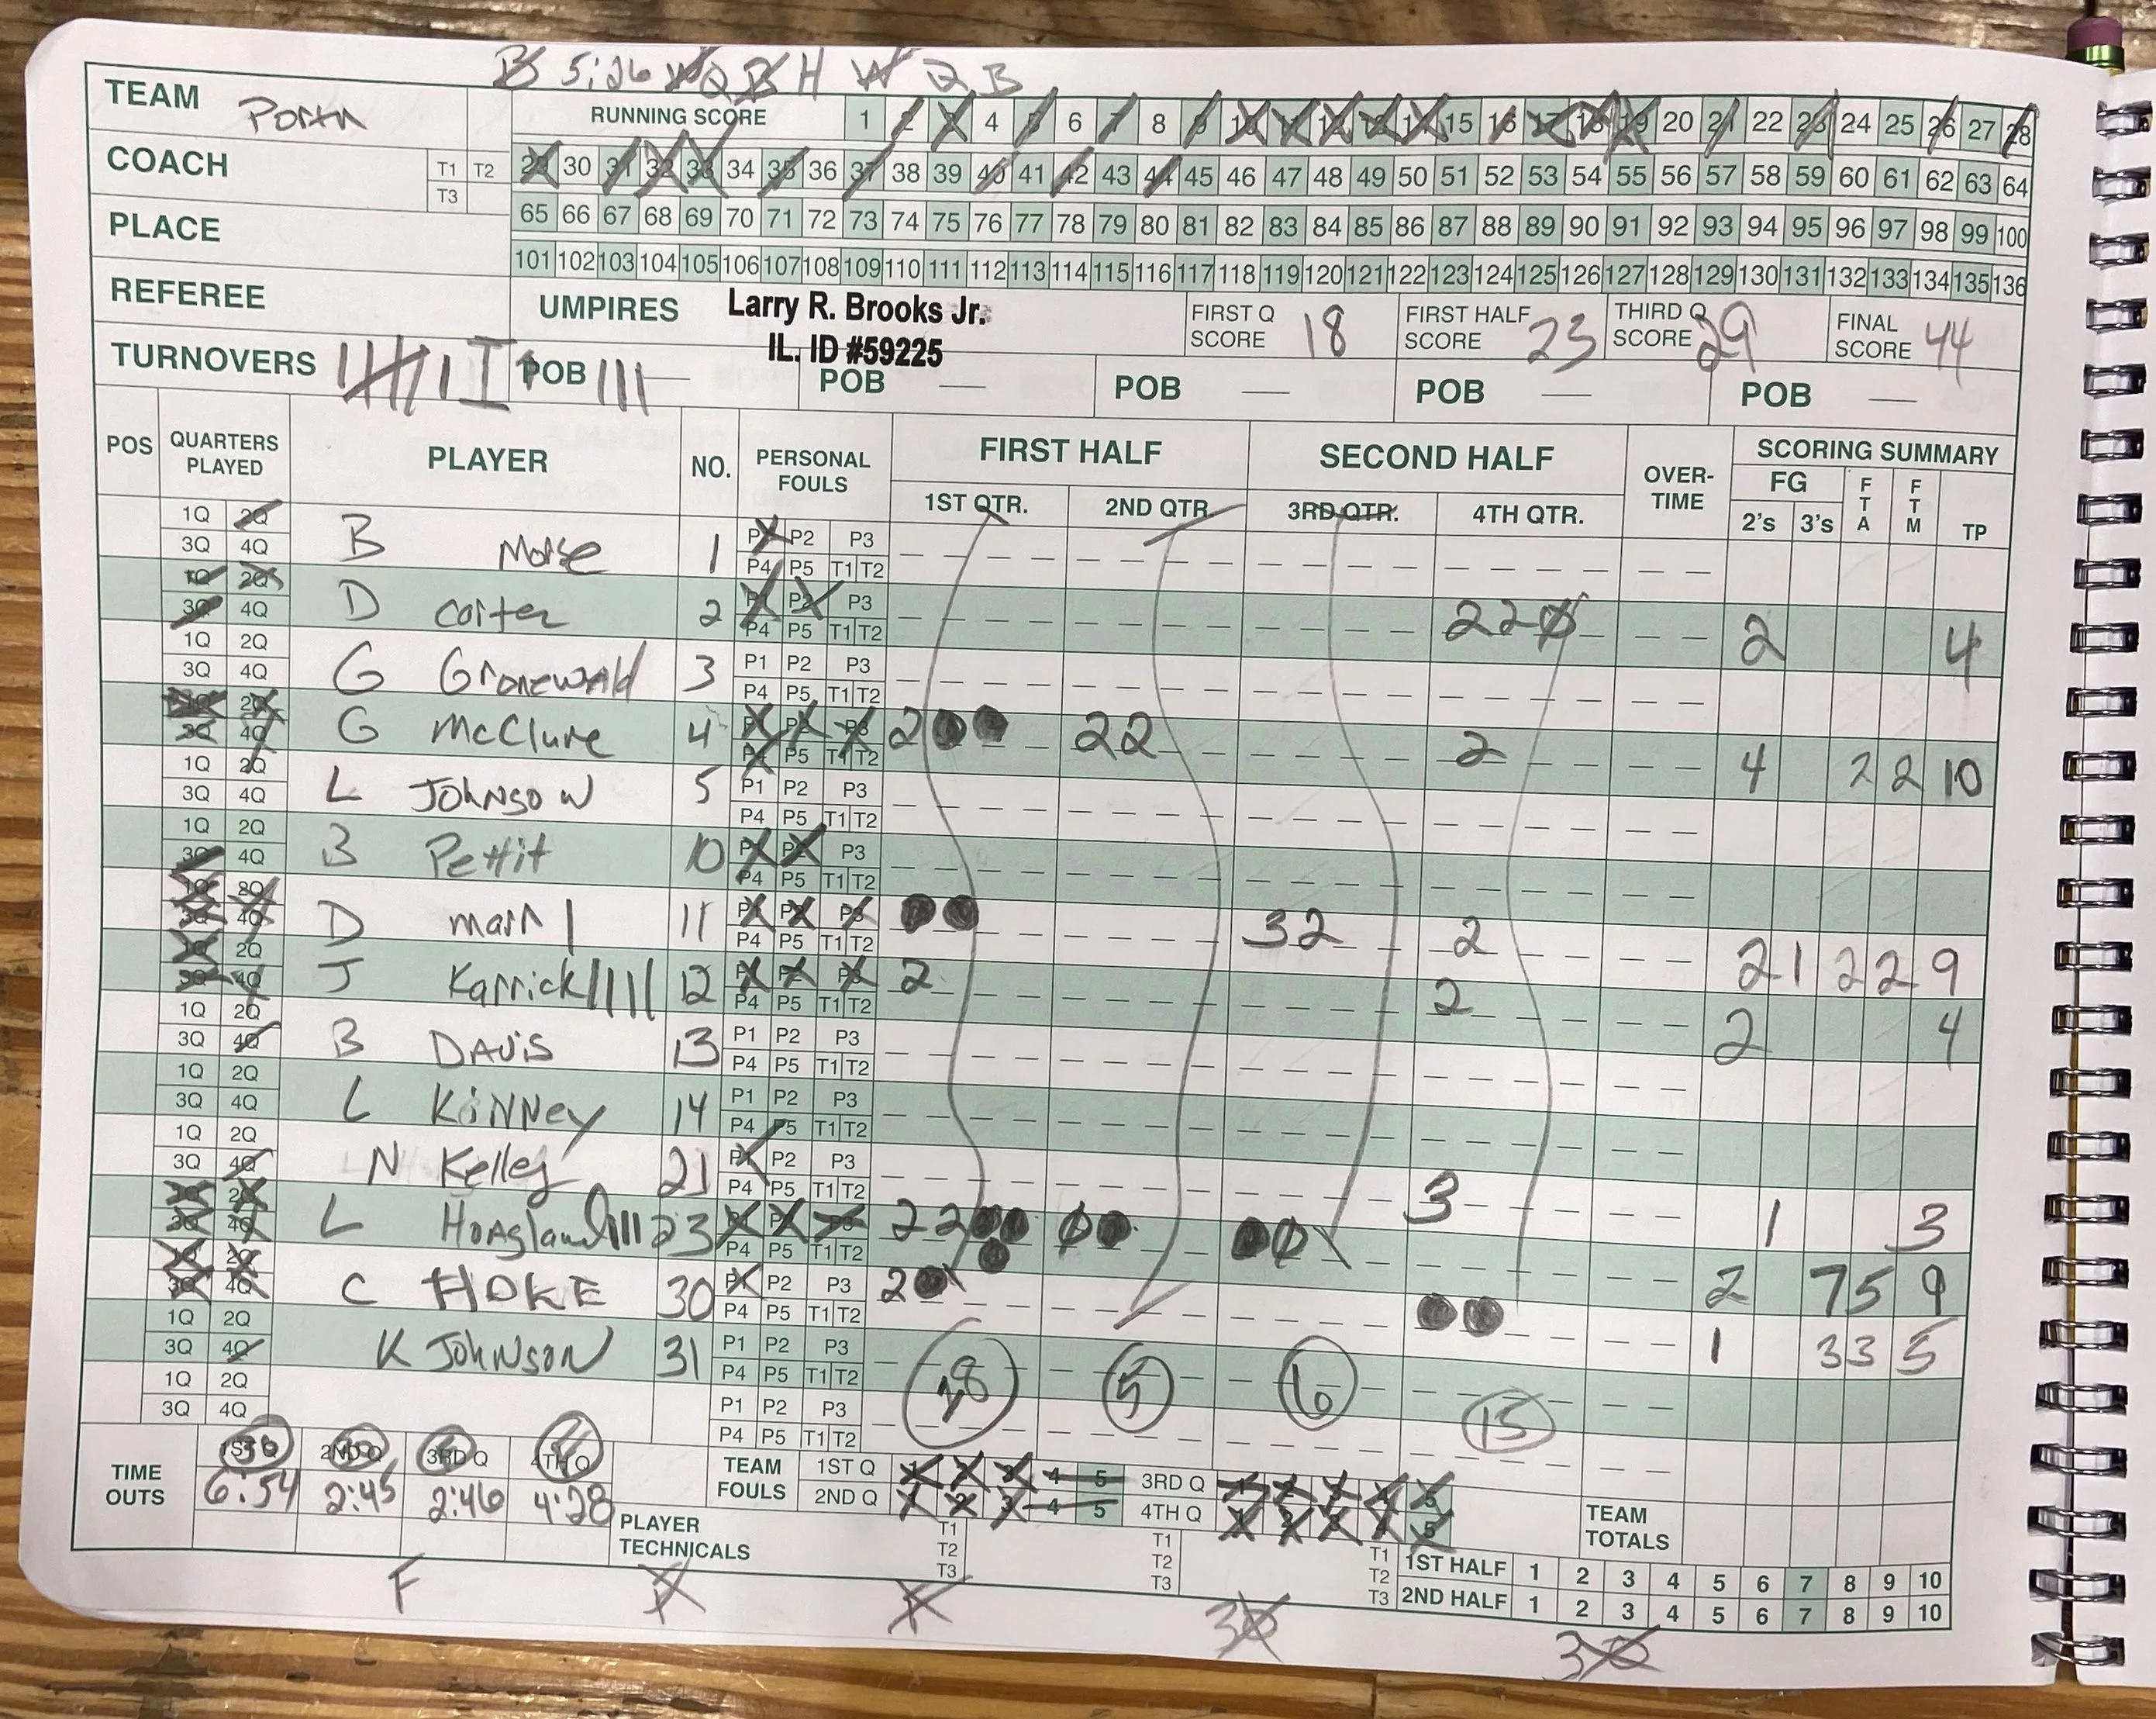 5:26 H W 2 B
TEAM
RUNNING SCORE 1 2 3 4 5 6 7 8 9 10 11 12 13 14 15 16 17 18 19 20 21 22 23 24 25 26 27 28
COACH T1 T2 T3
29 30 31 32 33 34 35 36 37 38 39 40 41 42 43 44 45 46 47 48 49 50 51 52 53 54 55 56 57 58 59 60 61 62 63 64
PLACE
65 66 67 68 69 70 71 72 73 74 75 76 77 78 79 80 81 82 83 84 85 86 87 88 89 90 91 92 93 94 95 96 97 98 99 100
101 102 103 104 105 106 107 108 109 110 111 112 113 114 115 116 117 118 119 120 121 122 123 124 125 126 127 128 129 130 131 132 133 134 135 136
REFEREE
UMPIRES Larry R. Brooks Jr.
IL. ID #59225
FIRST Q SCORE 18
FIRST HALF SCORE 23
THIRD Q SCORE 29
FINAL SCORE 44
TURNOVERS
POB POB POB POB POB
POS QUARTERS PLAYED PLAYER NO. PERSONAL FOULS FIRST HALF SECOND HALF OVER-TIME SCORING SUMMARY
1ST QTR. 2ND QTR. 3RD QTR. 4TH QTR. FG 2's 3's FTA FTM TP
1Q 2Q B Morse 1 P1 P2 P3
3Q 4Q P4 P5 T1 T2
1Q 2Q D Carter 2 P1 P2 P3 2 2 2 4
3Q 4Q P4 P5 T1 T2
1Q 2Q G Gronewald 3 P1 P2 P3
3Q 4Q P4 P5 T1 T2
1Q 2Q G McClure 4 P1 P2 P3 2 2 2 2 4 2 2 10
3Q 4Q P4 P5 T1 T2
1Q 2Q L JOHNSON 5 P1 P2 P3
3Q 4Q P4 P5 T1 T2
1Q 2Q B Pettit 10 P1 P2 P3
3Q 4Q P4 P5 T1 T2
1Q 2Q D 11 P1 P2 P3 3 2 2 2 1 2 2 9
3Q 4Q P4 P5 T1 T2
1Q 2Q J Karrick 12 P1 P2 P3 2 2 2 4
3Q 4Q P4 P5 T1 T2
1Q 2Q B DAVIS 13 P1 P2 P3
3Q 4Q P4 P5 T1 T2
1Q 2Q L KINNey 14 P1 P2 P3
3Q 4Q P4 P5 T1 T2
1Q 2Q N Kelley 21 P1 P2 P3 3 1 3
3Q 4Q P4 P5 T1 T2
1Q 2Q L Hoagland 23 P1 P2 P3 2 2 2 7 5 9
3Q 4Q P4 P5 T1 T2
1Q 2Q C HOKE 30 P1 P2 P3 2 1 3 3 5
3Q 4Q P4 P5 T1 T2
1Q 2Q K JOHNSON 31 P1 P2 P3
3Q 4Q P4 P5 T1 T2
1Q 2Q P1 P2 P3
3Q 4Q P4 P5 T1 T2
18 5 6 15
TIME OUTS 1ST Q 2ND Q 3RD Q 4TH Q
6:54 2:45 2:46 4:28
TEAM FOULS 1ST Q 1 2 3 4 5 3RD Q 1 2 3 4 5
2ND Q 1 2 3 4 5 4TH Q 1 2 3 4 5
TEAM TOTALS
PLAYER TECHNICALS T1 T2 T3 T1 T2 T3 T1 T2 T3
1ST HALF 1 2 3 4 5 6 7 8 9 10
2ND HALF 1 2 3 4 5 6 7 8 9 10
F